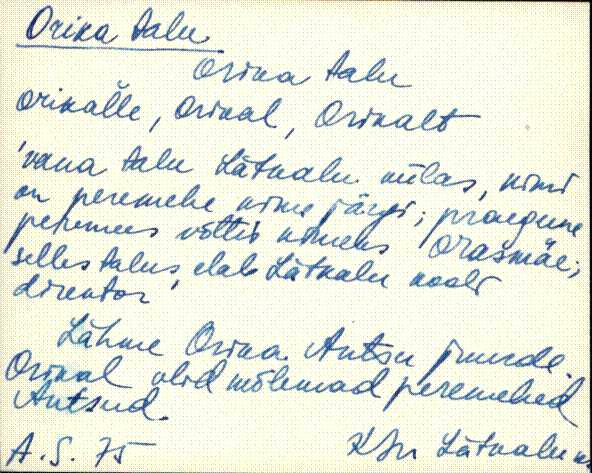 Orika talu
Orika talu
Orikal̆le, Orikal, Orikalt
'vana talu Lätkalu külas, nimi
on peremehe nime järgi; praegune
peremees võttis nimeks Orasmäe;
selles talus elab Lätkalu kooli
direktor'
Lähme Orika Antsu juurde.
Orikal olid mõlemad peremehed
Antsud.
A. S. 75
KJn Lätkalu k.